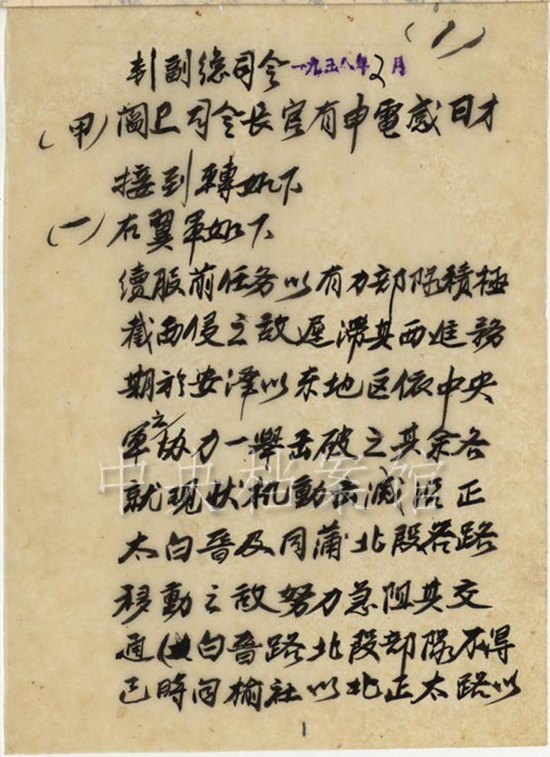 (1)
彭副總司令 一九三八年2月
(甲)阎司令长官有申電感日才
接到轉如下
(一)右翼軍如下
續服前任务以有力部隊積極
截西侵之敌遲滞其西進務
期於安泽以东地区依中央
軍之协力一舉击破之其余各
就现状机動击滅沿正
太白晋及同蒲北段各路
移動之敌努力急阻其交
通(白晋路北段部隊不得
已時向榆社以北正太路以
1
中央档案馆